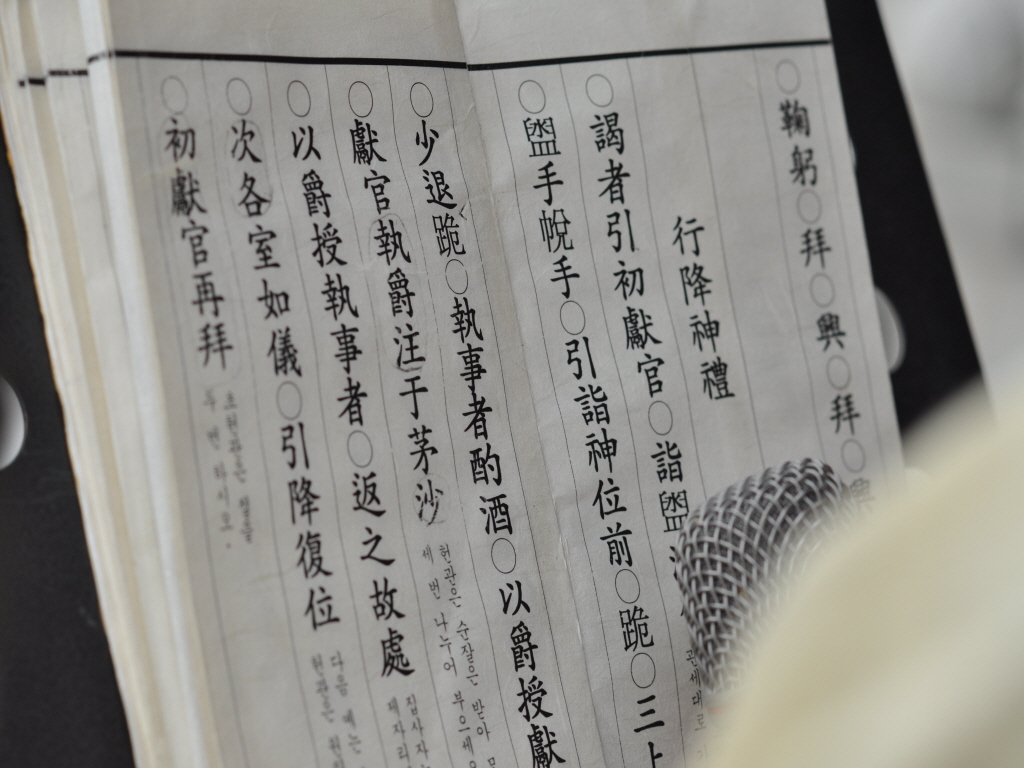 ○鞠躬○拜○興○拜○
行降神禮
○謁者引初獻官○詣盥
관세대로
○盥手帨手○引詣神位前○跪○三
少退跪○執事者酌酒○以爵授獻
○獻官執爵注于茅沙
헌관은 술잔을 받아
세 번 나누어 부으세
○以爵授執事者○返之故處
집사자는
제자리
○次各室如儀○引降復位
다음 에는
헌관은
○初獻官再拜
초헌관은 절을
두 번 하시오.